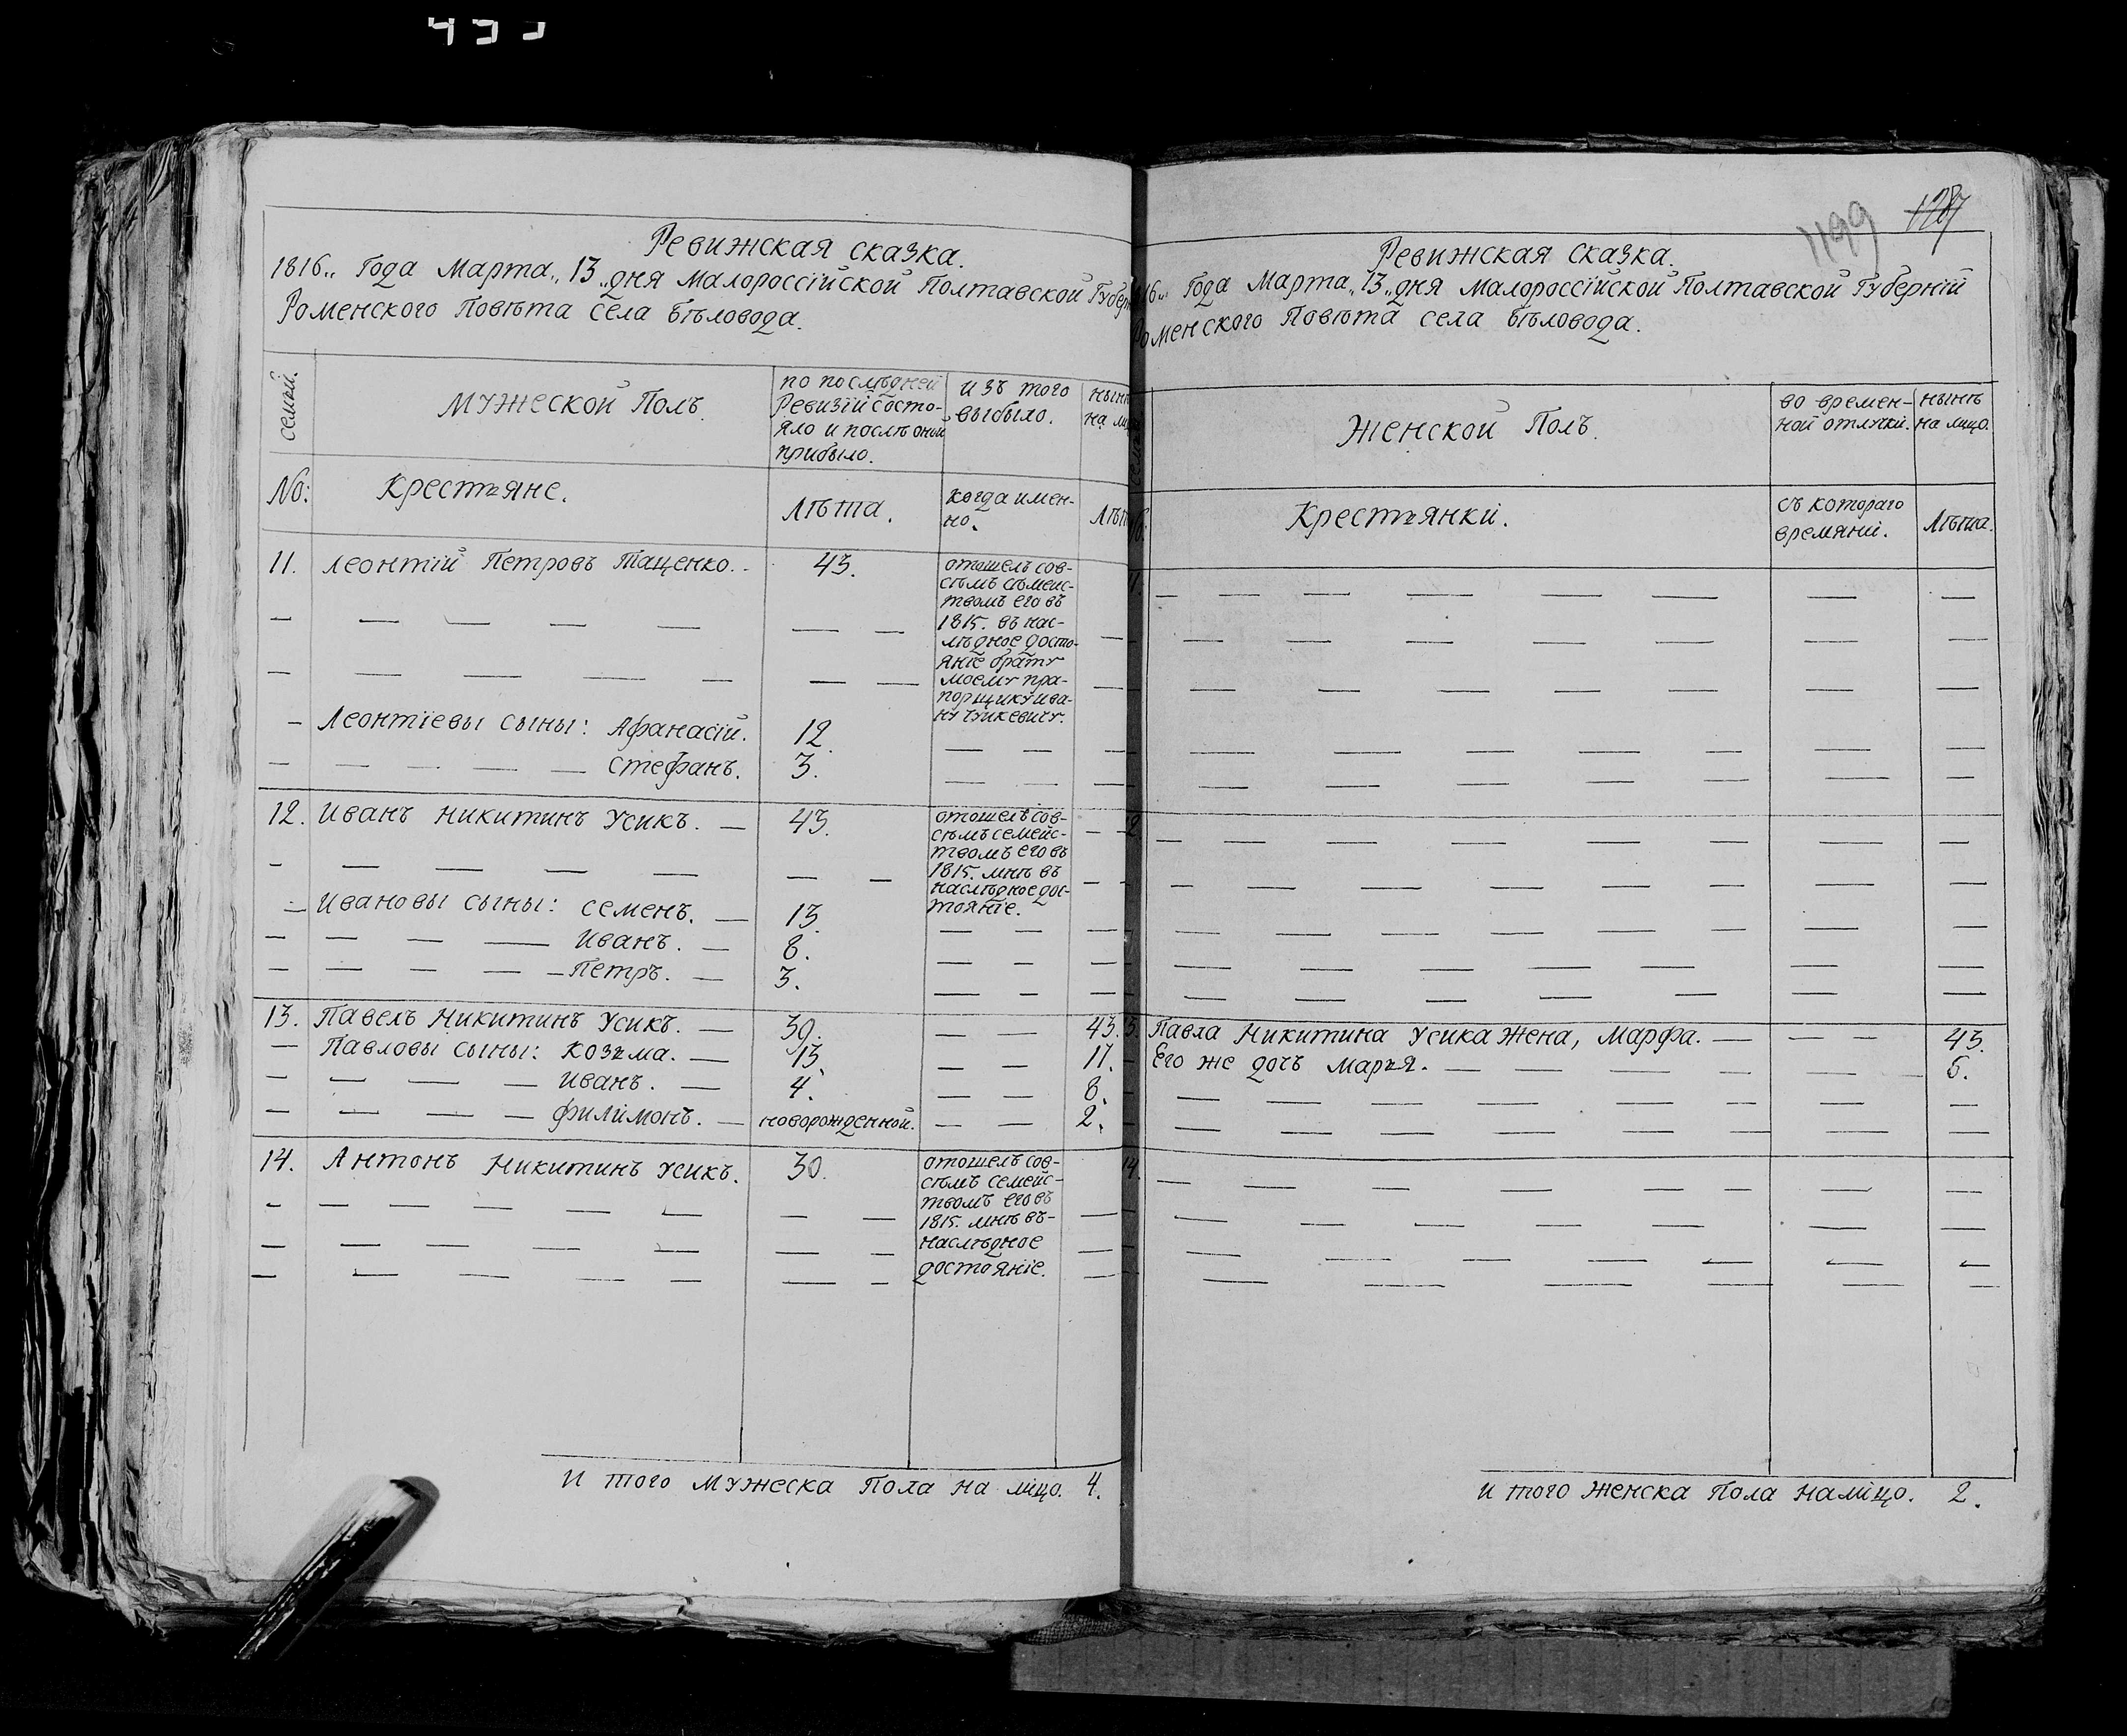 Ревижская сказка.
1816„ Года Марта„ 13„ дня Малороссійской Полтавской Губерн
Роменского Повѣта Села Бѣловода.
семей.
Мужеской Полъ.
по послѣдней
Ревизіи состо-
яло и послѣ оной
прибыло.
изъ того
выбыло.
нынѣ
на ли
No:
Крестьяне.
Лѣта.
когда имен-
но.
Лѣт
11. Леонтій Петровъ Тащенко. 43.
отошелъ сов-
сѣмъ сѣмейс-
твомъ его въ
1815. въ нас-
лѣдное досто-
яніе брату
моему пра-
порщику Ива-
ну Чуйкевичу.
Леонтіевы сыны: Афанасій. 12.
Стефанъ. 3.
12. Иванъ Никитинъ Усикъ. 43.
отошелъ сов-
сѣмъ семейс-
твомъ его въ
1815. мнѣ въ
наслѣдное дос-
тояніе.
Ивановы сыны: Семенъ. 13.
Иванъ. 8.
Петръ. 3.
13. Павелъ Никитинъ Усикъ. 39. 43.
Павловы сыны: Козьма. 13. 17.
Иванъ. 4. 8.
Филимонъ. новорожденной. 2.
14. Антонъ Никитинъ Усикъ. 30.
отошелъ сов-
сѣмъ семейс-
твомъ его въ
1815. мнѣ въ-
наслѣдное
достояніе.
И того Мужеска Пола на лицо. 4.
1199
Ревижская Сказка.
16„ Года Марта„ 13„ дня Малороссійской Полтавской Губерніи
Роменского Повѣта села Бѣловода.
Женской Полъ.
во времен-
ной отлучки.
нынѣ
на лицо.
Крестьянки.
съ котораго
времяни.
Лѣта.
13. Павла Никитина Усика Жена, Марфа. 43.
Его же дочь Марья. 6.
14.
И того Женска Пола на лицо. 2.